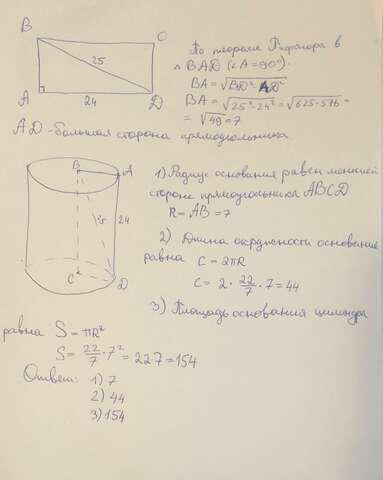 B
C
25
A
24
D
По теореме Пифагора в
△ BAD (∠A = 90°).
BA = √BD² - AD²
BA = √25² - 24² = √625 - 576 =
= √49 = 7
AD - большая сторона прямоугольника
B
A
25
24
C
D
1) Радиус основания равен меньшей
стороне прямоугольника ABCD
R = AB = 7
2) Длина окружности основания
равна C = 2πR
C = 2 · 22/7 · 7 = 44
3) Площадь основания цилиндра
равна S = πR²
S = 22/7 · 7² = 22·7 = 154
Ответ: 1) 7
2) 44
3) 154